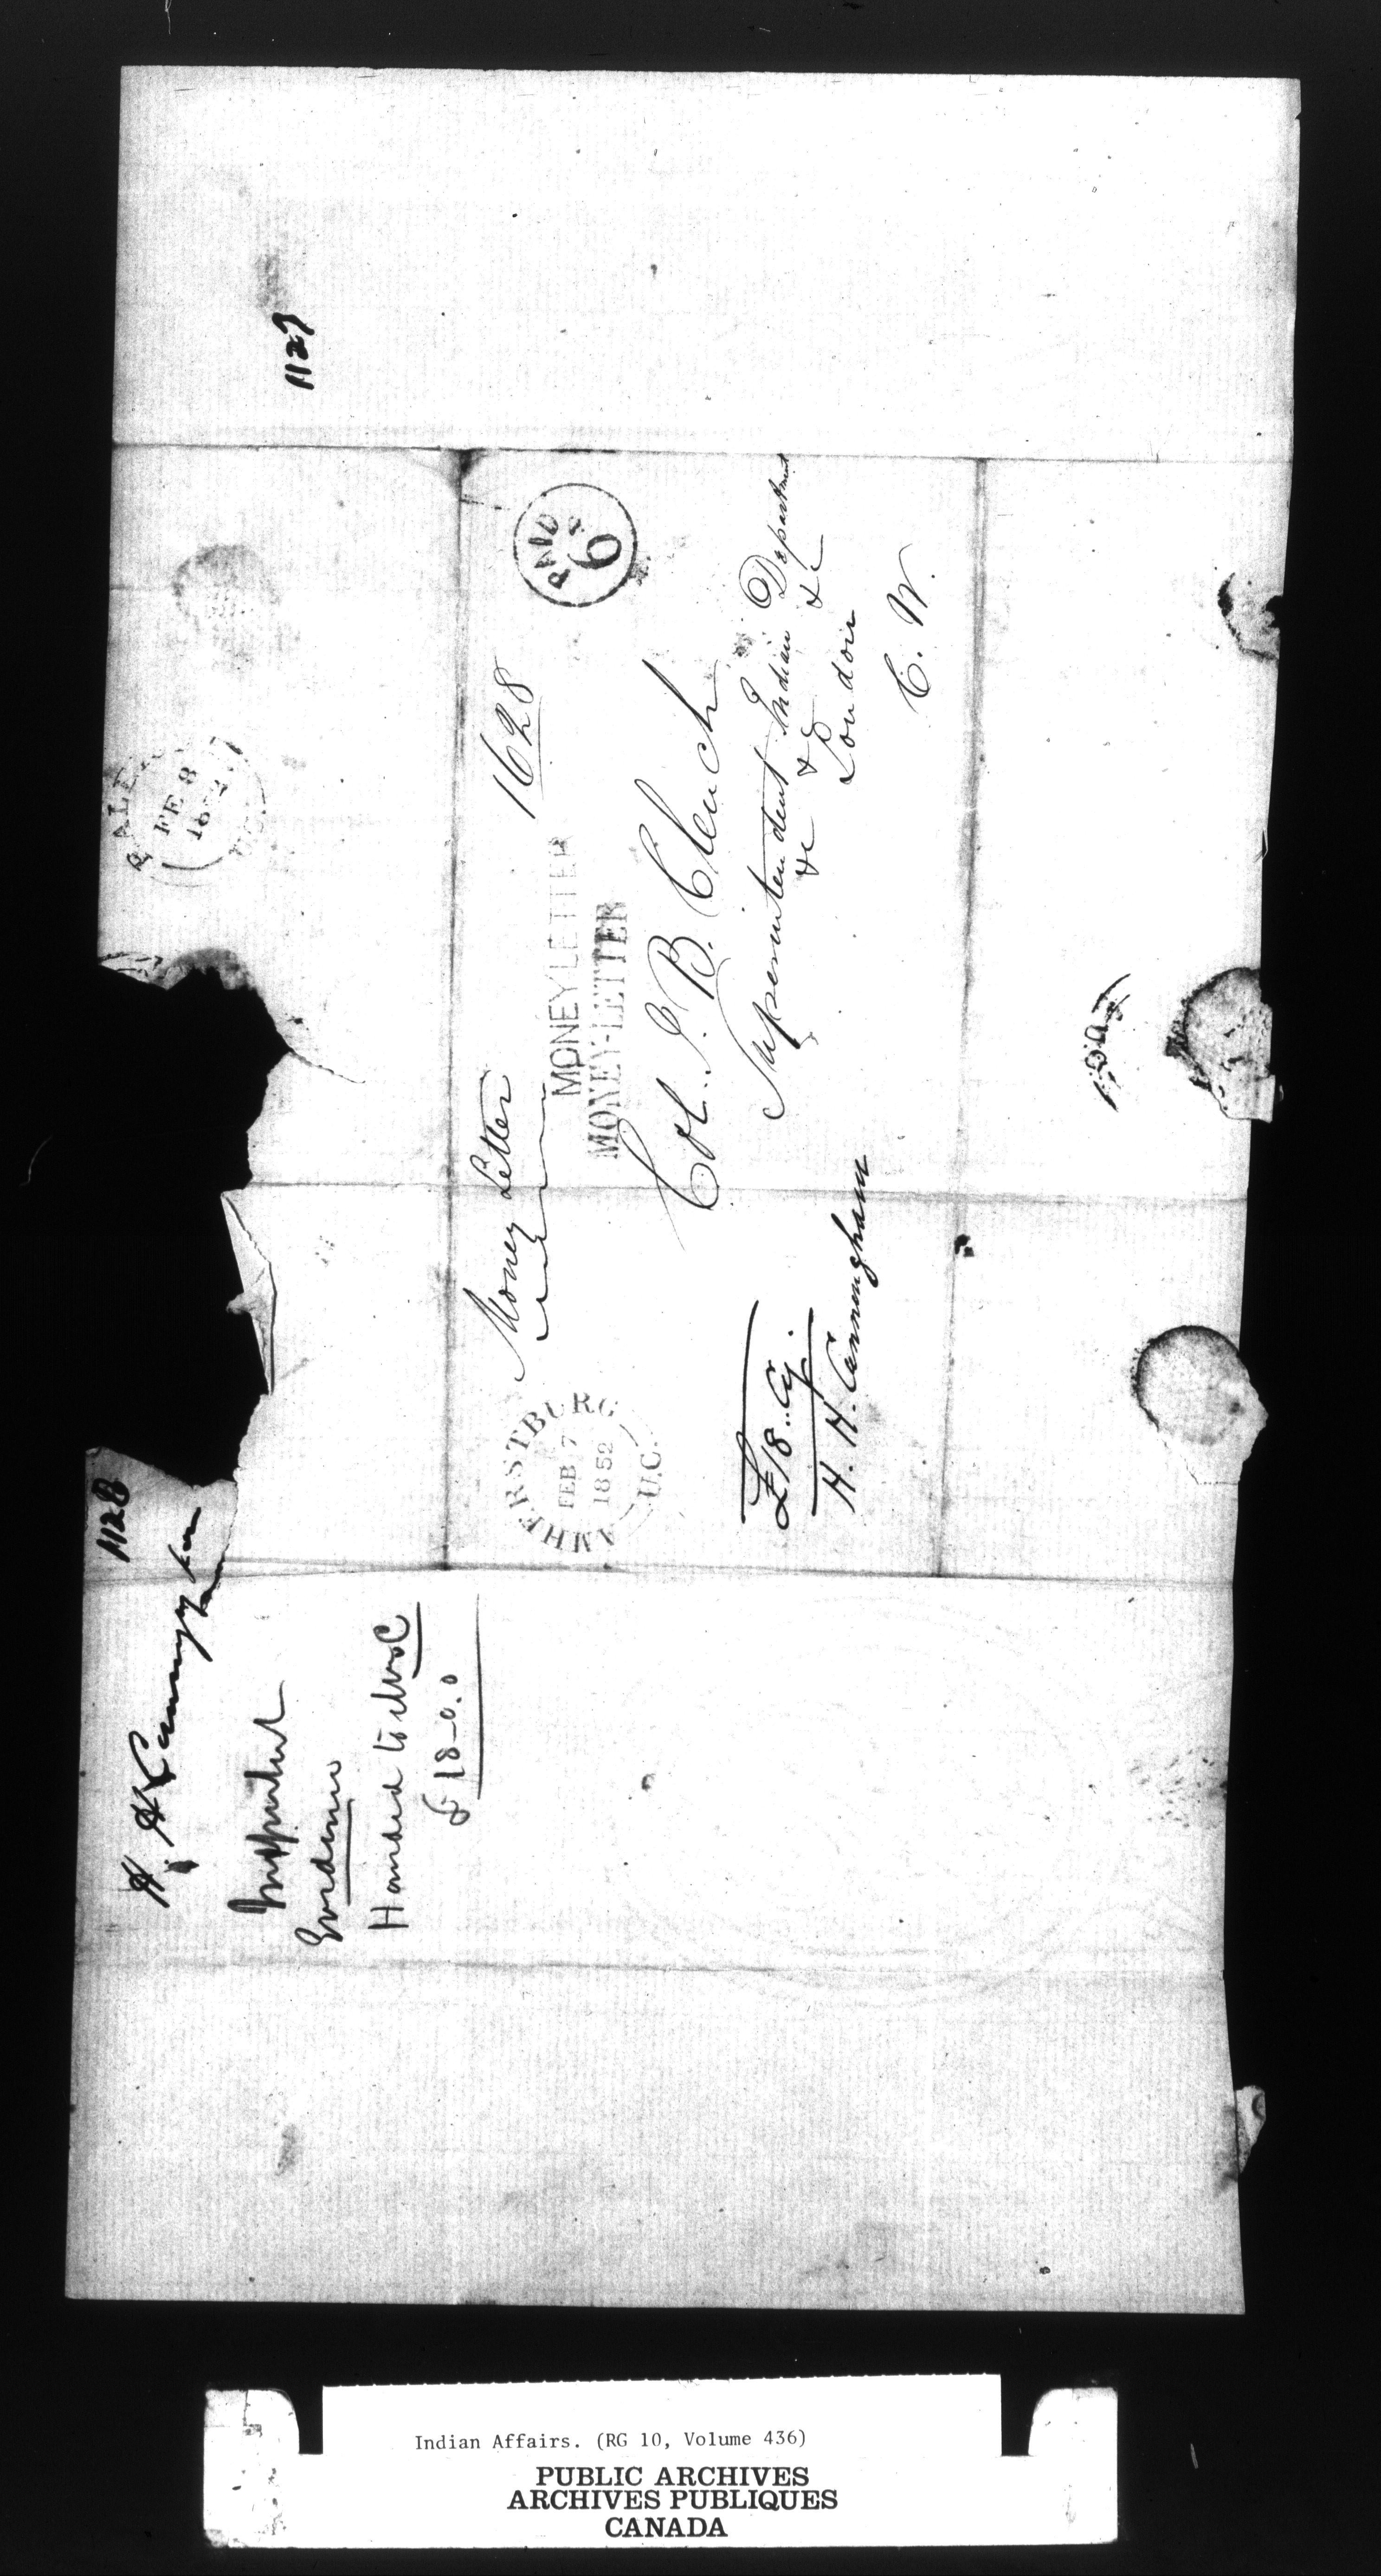 1127
RALEI
FE 8
PAID
6
1628
Money Letter
MONEY LETTER
MONEY-LETTER
Col. J. B. Clench
Superintendent Indian Department
&c &c &c
London
C. W.
AMHERSTBURG
FEB 7
1852
U.C.
£18..Cy.
H. H. Cunningham
1128
H. H Cunningham
Handed to
£18-0.0
Indian Affairs. (RG 10, Volume 436)
PUBLIC ARCHIVES
ARCHIVES PUBLIQUES
CANADA